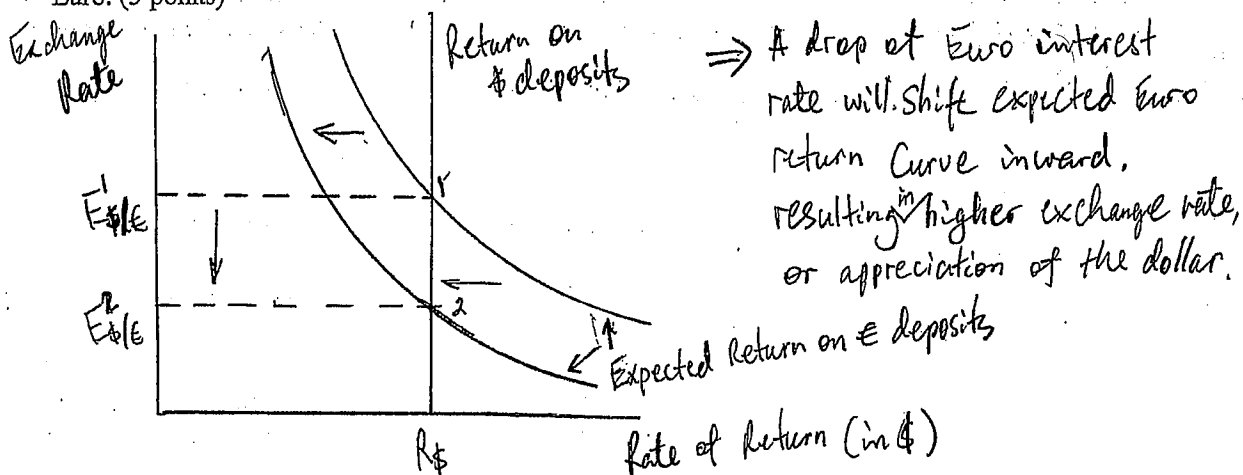 Euro. (5 points)
Exchange
Rate
Return on
$ deposits
⇒ A drop of Euro interest
rate will shift expected Euro
return curve inward,
resulting in higher exchange rate,
or appreciation of the dollar.
E¹$/€
1'
E²$/€
2
Expected Return on € deposits
R$
Rate of Return (in $)